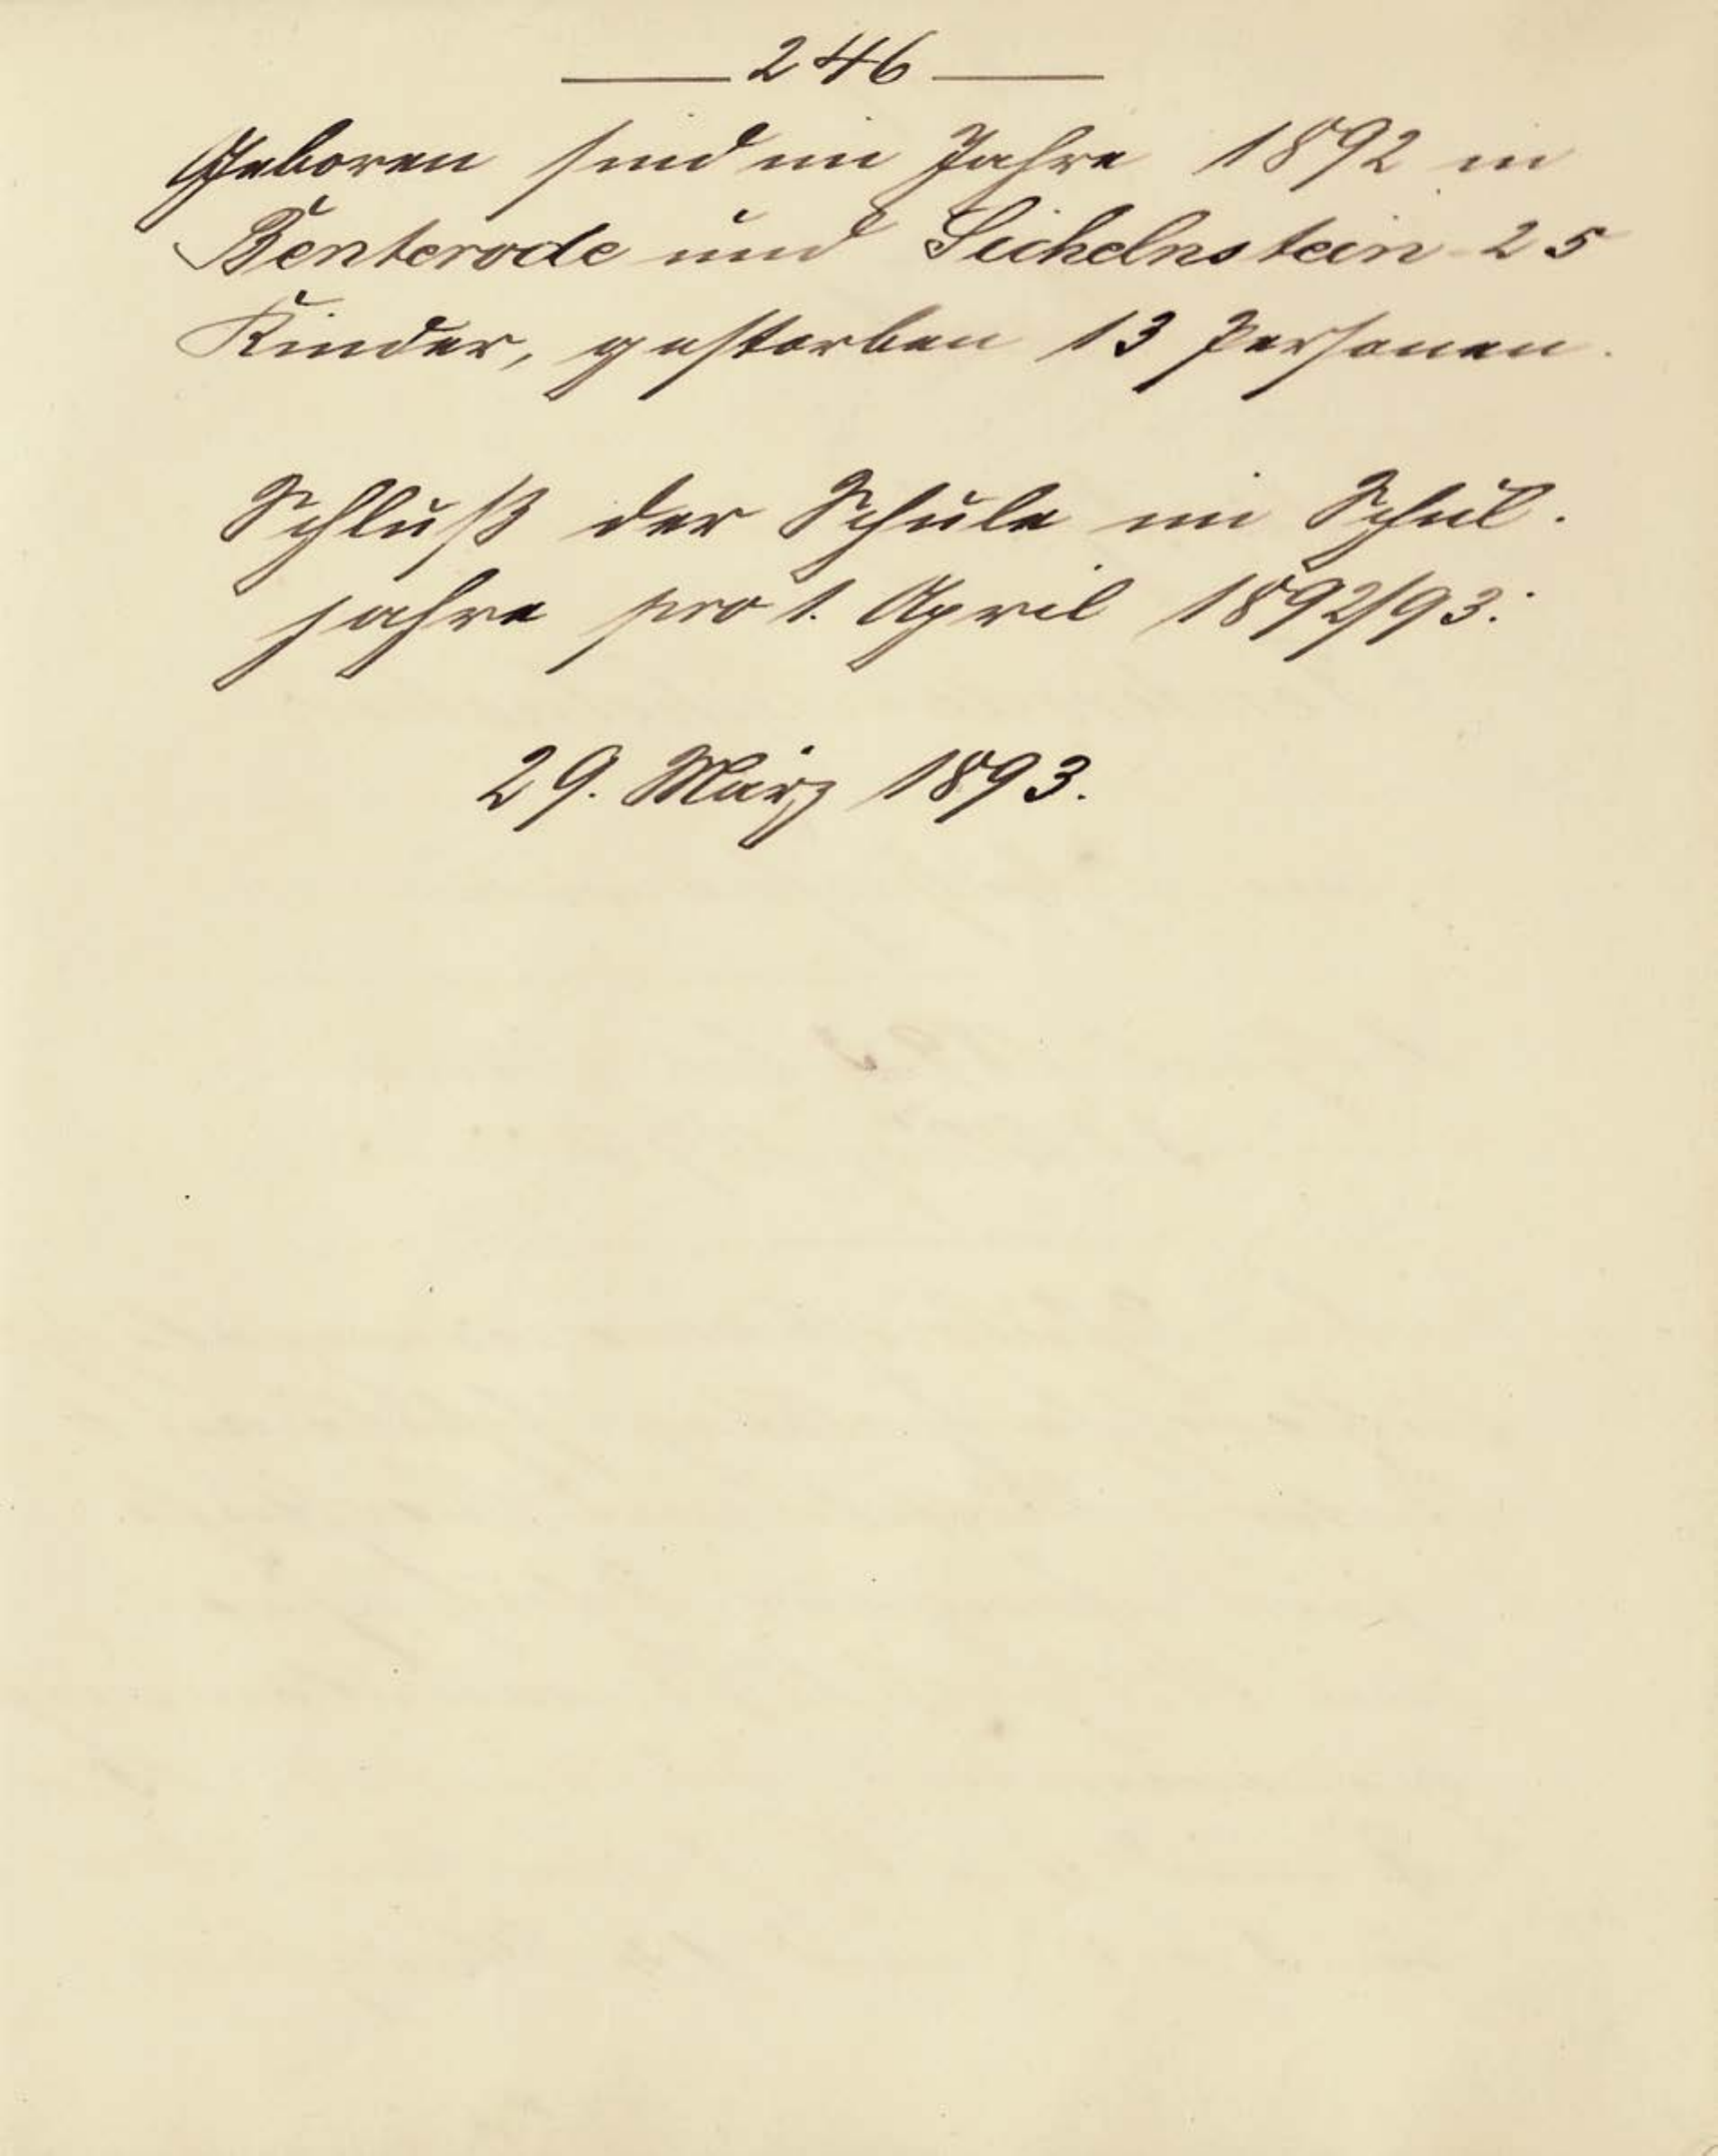 246
Geboren sind im Jahre 1892 in
Benterode und Sichelnstein 25
Kinder, gestorben 13 Personen.
Schluß der Schule im Schul-
jahre pro 1. April 1892/93:
29. März 1893.